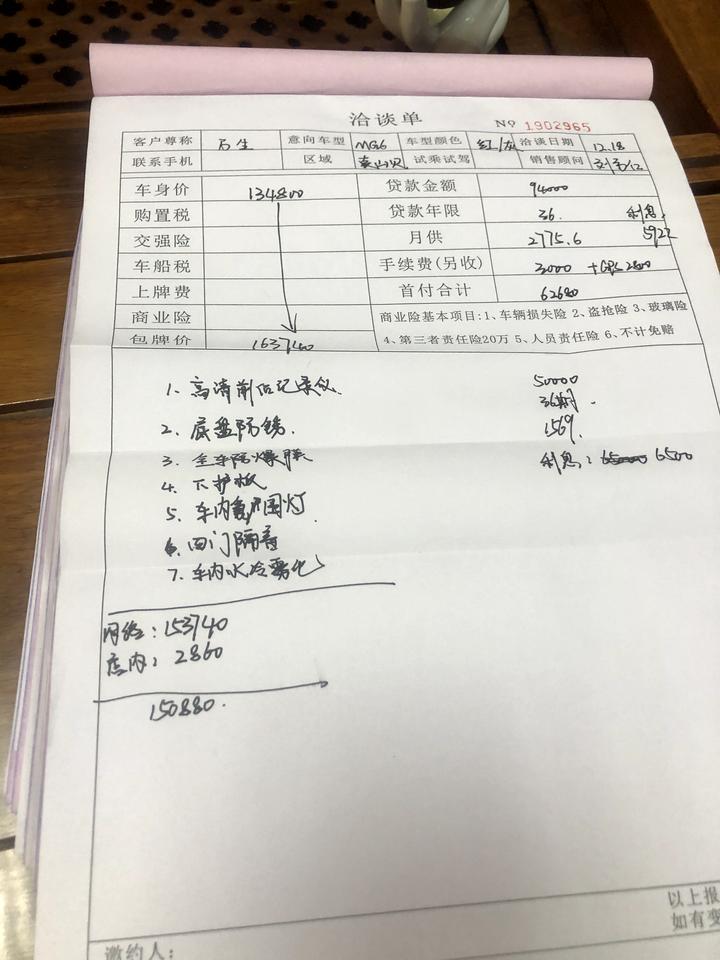 洽谈单 Nº 1902965
客户尊称 石生 意向车型 MG6 车型颜色 红/灰 洽谈日期 12.18
联系手机 区域 试乘试驾 销售顾问
车身价 134800 贷款金额 94000
购置税 贷款年限 36. 利息
交强险 月供 2775.6 5922
车船税 手续费(另收) 3000 +GPS 2800
上牌费 首付合计 62680
商业险 商业险基本项目:1、车辆损失险 2、盗抢险 3、玻璃险
包牌价 163740 4、第三者责任险20万 5、人员责任险 6、不计免赔
1、高清前后记录仪 50000
36期
2、底盘防锈 1569
3、全车防爆膜 利息: 6500
4、下护板
5、车内氛围灯
6、四门隔音
7、车内水冷雾化
网络:153740
店内:2860
150880.
以上报
如有变
邀约人: